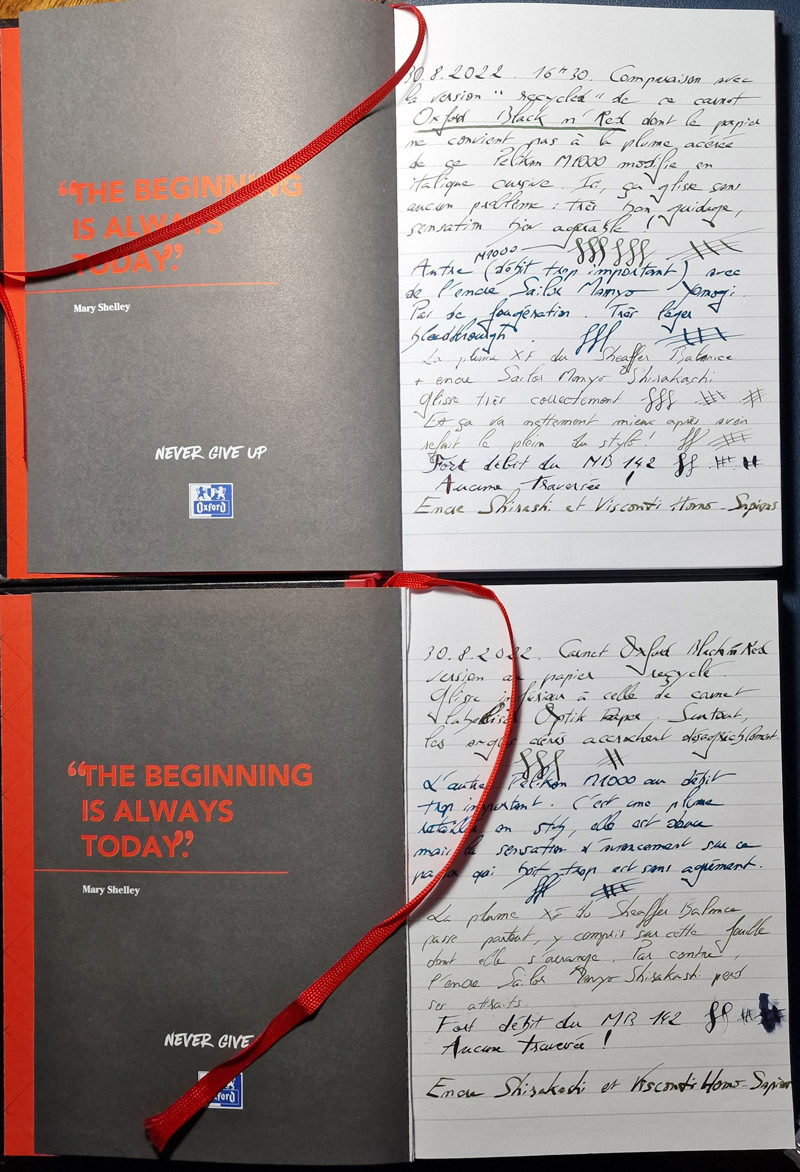 “THE BEGINNING
IS ALWAYS
TODAY.”
Mary Shelley
NEVER GIVE UP
Oxford
30.8.2022. 16h30. Comparaison avec
la version "recycled" de ce carnet
Oxford Black n' Red dont le papier
ne convient pas à la plume acérée
de ce Pelikan M1000 modifié en
italique cursive. Ici, ça glisse sans
aucun problème : très bon guidage,
sensation bien agréable !
M1000
Autre (débit trop important) avec
de l'encre Sailor Manyo Yomogi.
Pas de fougération. Très léger
bleedthrough.
La plume XF du Sheaffer Balance
+ encre Sailor Manyo Shirakashi
Glisse très correctement
Et ça va nettement mieux après avoir
refait le plein du stylo !
Fort débit du MB 142
Aucune traversée !
Encre Shirashi et Visconti Homo-Sapiens
“THE BEGINNING
IS ALWAYS
TODAY.”
Mary Shelley
NEVER GIVE
Oxford
30.8.2022. Carnet Oxford Black n Red
version au papier recyclé.
Glisse inférieur à celle de carnet
labellisé Optik Paper. Surtout,
les angles acérés accrochent désagréablement.
L'autre Pelikan M1000 au débit
trop important. C'est une plume
retaillée en stub, elle est douce
mais la sensation d'avancement sur ce
papier qui boit trop est sans agrément.
La plume XF du Sheaffer Balance
passe partout, y compris sur cette feuille
dont elle s'arrange. Par contre,
l'encre Sailor Manyo Shirakashi perd
ses attraits.
Fort débit du MB 142
Aucune traversée !
Encre Shirakashi et Visconti Homo-Sapiens